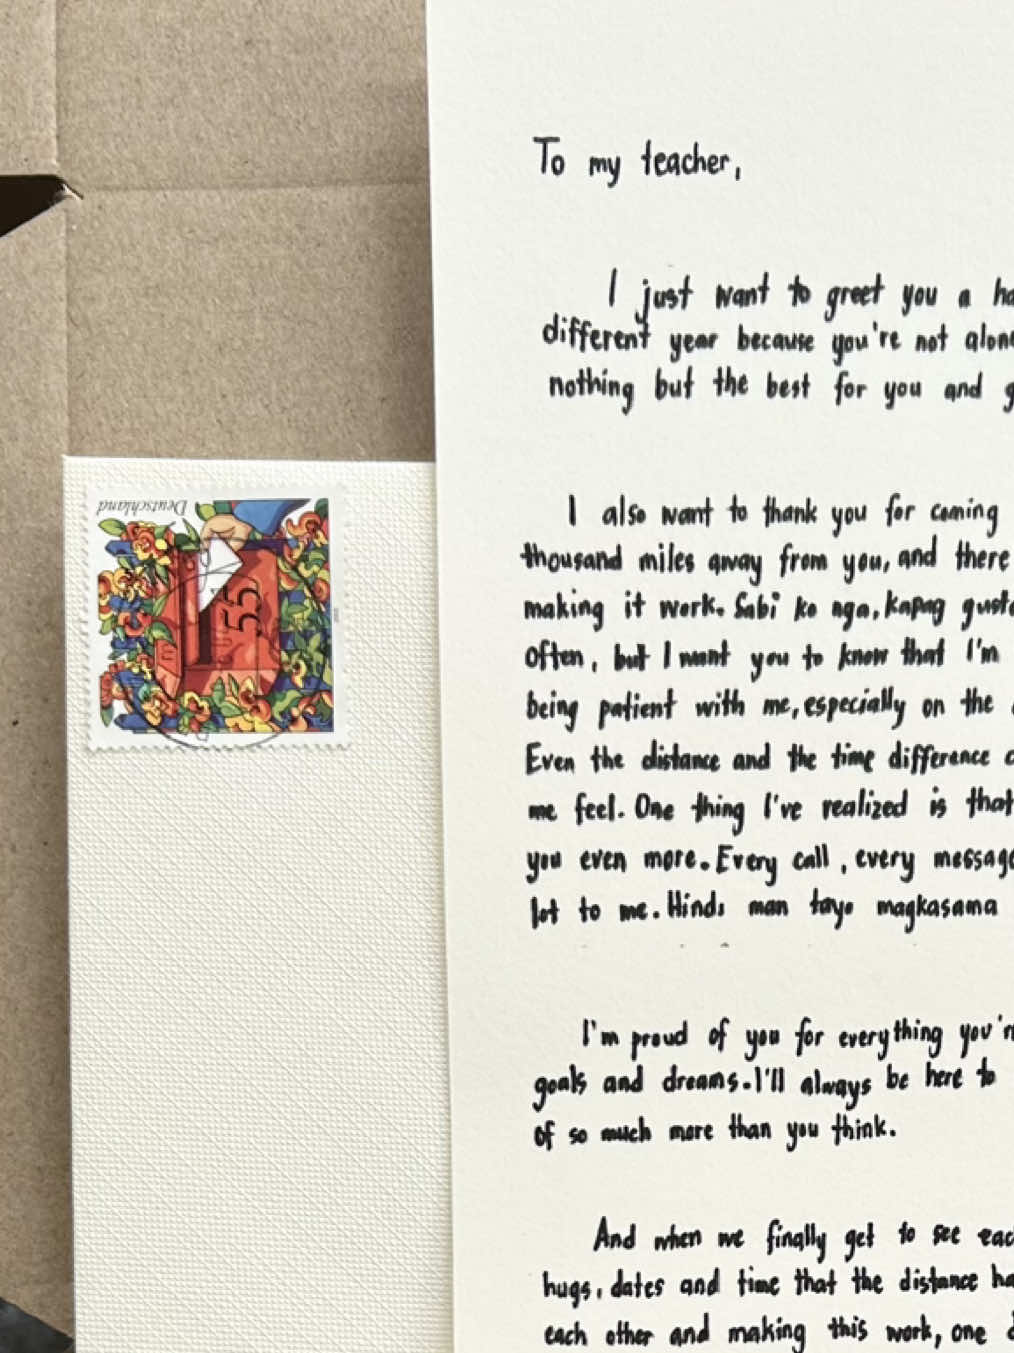 Deutschland
55
To my teacher,
I just want to greet you a ha
different year because you're not alone
nothing but the best for you and g
I also want to thank you for coming
thousand miles away from you, and there
making it work. Sabi ko nga, kapag gusto
often, but I want you to know that I'm
being patient with me, especially on the
Even the distance and the time difference c
me feel. One thing I've realized is that
you even more. Every call, every message
lot to me. Hindi man tayo magkasama
I'm proud of you for everything you'r
goals and dreams. I'll always be here to
of so much more than you think.
And when we finally get to see eac
hugs, dates and time that the distance ha
each other and making this work, one d